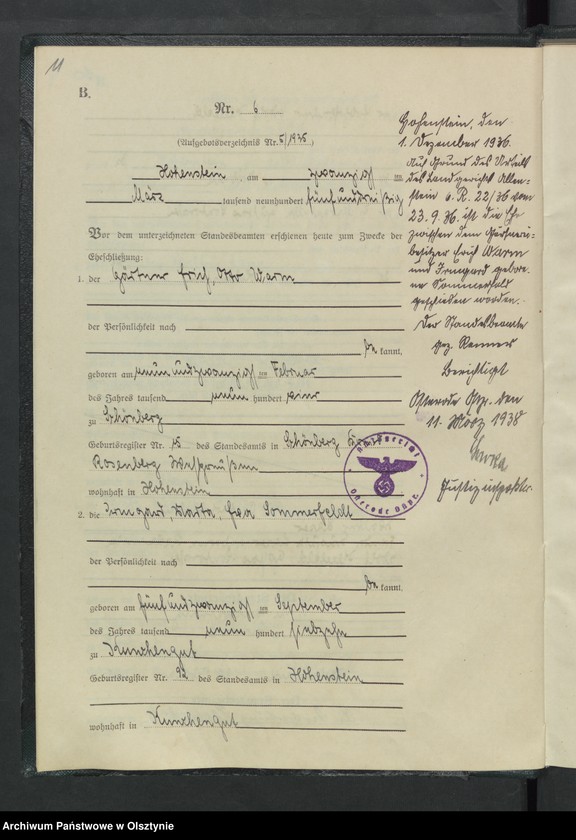 11
B.
Nr. 6
(Aufgebotsverzeichnis Nr. 5/1935)
Hohenstein, am zwanzigsten
März tausend neunhundert fünfunddreißig
Vor dem unterzeichneten Standesbeamten erschienen heute zum Zwecke der
Eheschließung:
1. der Gärtner Erich, Otto Warm
der Persönlichkeit nach
be kannt,
geboren am neunundzwanzigsten Februar
des Jahres tausend neun hundert
zu Schönberg
Geburtsregister Nr. 15 des Standesamts in Schönberg Kreis
Rosenberg Westpreußen
wohnhaft in Hohenstein
2. die Irmgard, Marta, Eva Sommerfeldt
der Persönlichkeit nach
be kannt,
geboren am fünfundzwanzigsten September
des Jahres tausend neun hundert siebzehn
zu Kunchengut
Geburtsregister Nr. 92 des Standesamts in Hohenstein
wohnhaft in Kunchengut
Hohenstein, den
1. Dezember 1936.
Auf Grund des Urteils
des Landgerichts Allen-
stein 6. R. 22/36 vom
23.9.36. ist die Ehe
zwischen dem Gärtnerei-
besitzer Erich Warm
und Irmgard gebore-
ne Sommerfeld
geschieden worden.
Der Standesbeamte
gez. Renner
Berichtigt
Osterode Opr. den
11. März 1938
Justizinspektor
Amtsgericht
Osterode Ostpr.
Archiwum Państwowe w Olsztynie